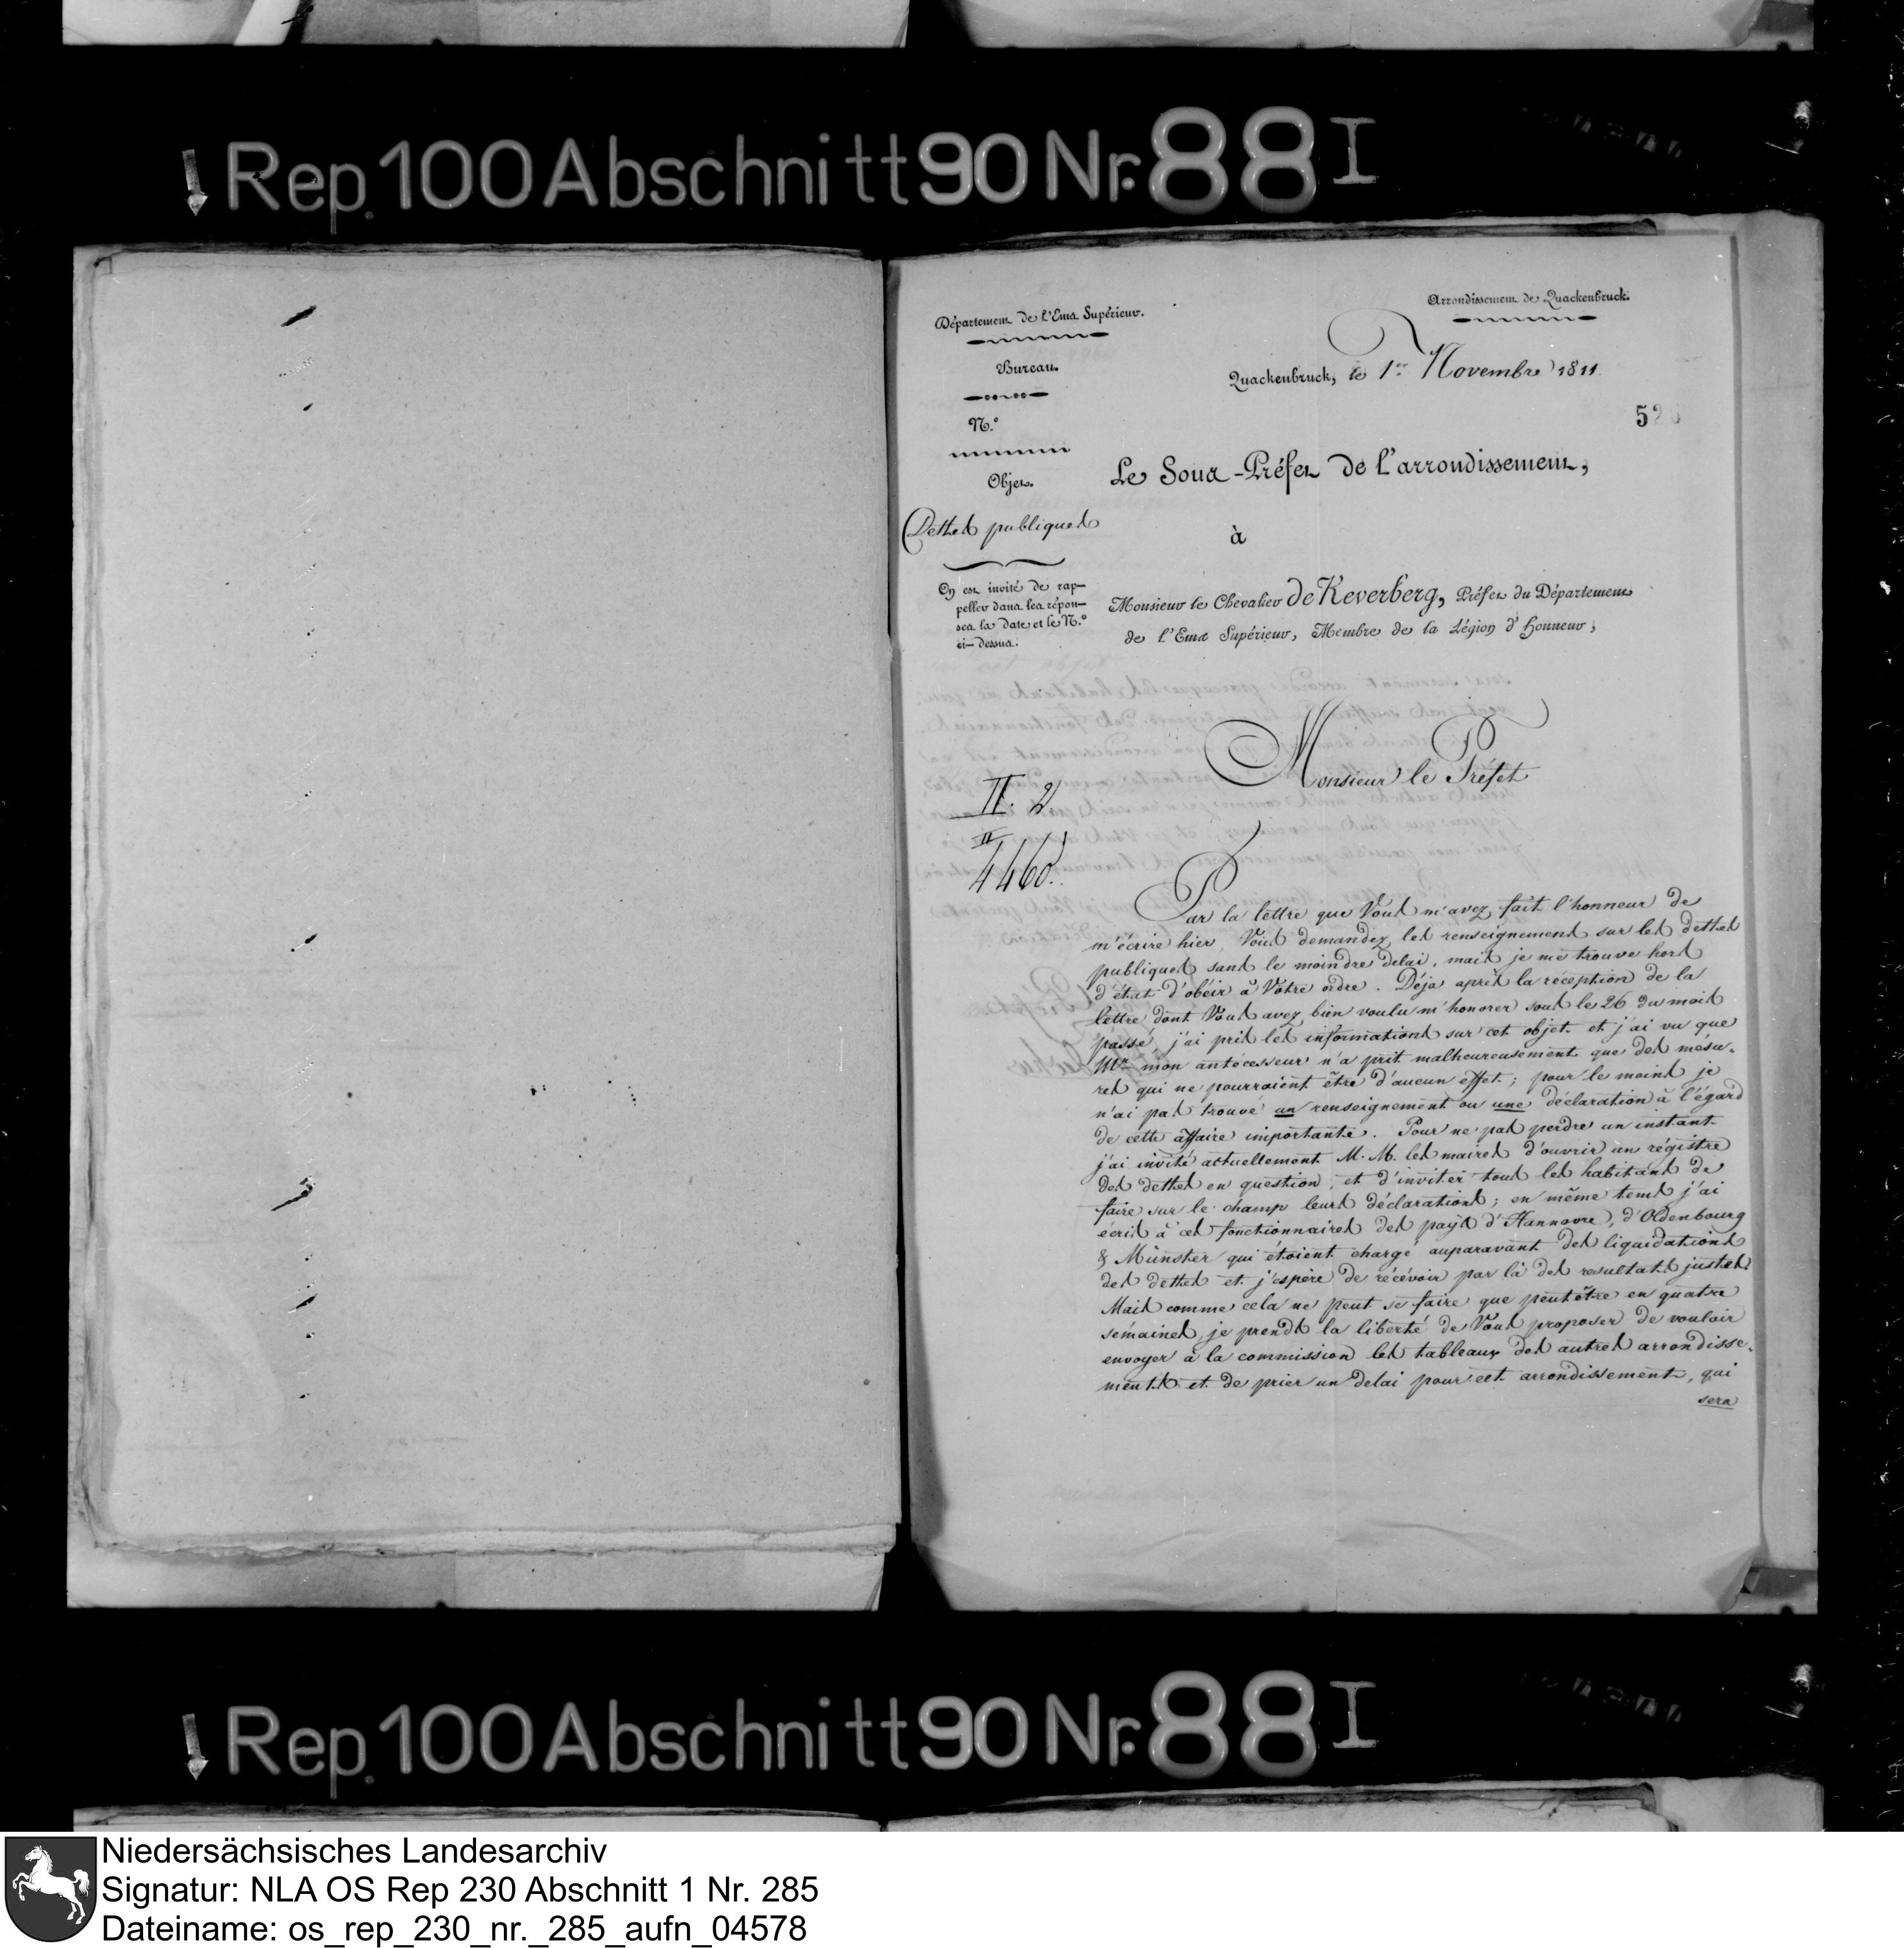 Rep. 100 Abschnitt 90 Nr. 88 I
Département de l'Ems Supérieur.
Arrondissement de Quackenbruck.
Bureau.
Quackenbruck, le 1er Novembre 1811.
N.°
52
Objet.
Le Sous-Préfet de l'arrondissement,
Dettes publiques
à
On est invité de rap-
peller dans les répon-
ses la date et le N.°
ci-dessus.
Monsieur le Chevalier de Keverberg, Préfet du Département
de l'Ems Supérieur, Membre de la Légion d'Honneur;
Monsieur le Préfet
II. 2
II
4460.
Par la lettre que Vous m'avez fait l'honneur de
m'écrire hier, Vous demandez les renseignements sur les dettes
publiques sans le moindre delai, mais je me trouve hors
d'état d'obéir à Votre ordre. Déja après la réception de la
lettre dont Vous avez bien voulu m'honorer sous le 26 du mois
passé, j'ai pris les informations sur cet objet et j'ai vu que
Mr mon antécesseur n'a prit malheureusement que des mésu-
res qui ne pourroient être d'aucun effet; pour le moins je
n'ai pas trouvé un renseignement ou une déclaration à l'égard
de cette affaire importante. Pour ne pas perdre un instant
j'ai invité actuellement M. M. les maires d'ouvrir un régistre
des dettes en question, et d'inviter tous les habitans de
faire sur le champ leurs déclarations; en même tems j'ai
écris à ces fonctionnaires des pays d'Hannovre, d'Oldenbourg
& Münster qui étoient chargé auparavant des liquidations
des dettes et j'espère de récévoir par là des resultats justes
Mais comme cela ne peut se faire que peutêtre en quatre
semaines, je prends la liberté de Vous proposer de vouloir
envoyer à la commission les tableaux des autres arrondisse-
ments et de prier un delai pour cet arrondissement, qui
sera
Rep. 100 Abschnitt 90 Nr. 88 I
Niedersächsisches Landesarchiv
Signatur: NLA OS Rep 230 Abschnitt 1 Nr. 285
Dateiname: os_rep_230_nr._285_aufn_04578